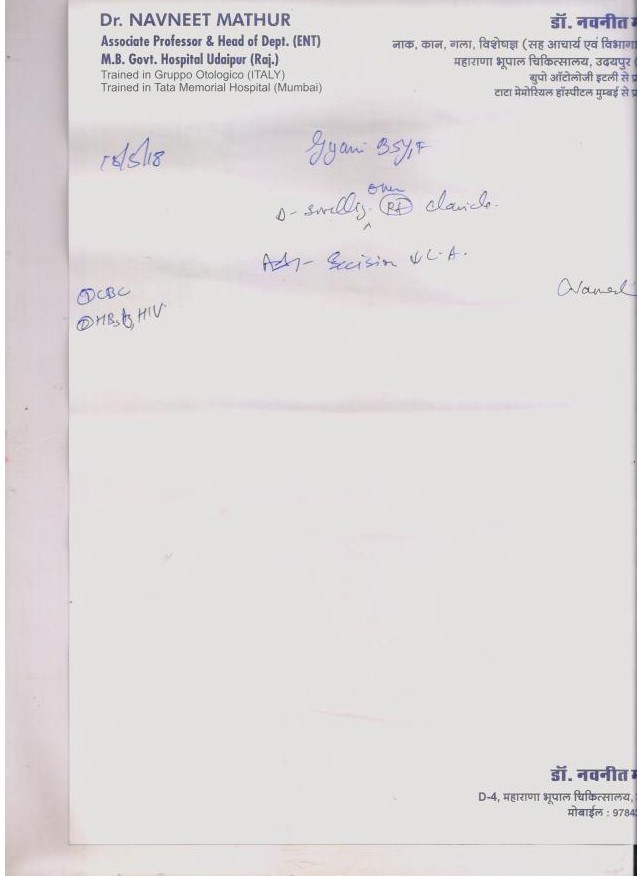 Dr. NAVNEET MATHUR
Associate Professor & Head of Dept. (ENT)
M.B. Govt. Hospital Udaipur (Raj.)
Trained in Gruppo Otologico (ITALY)
Trained in Tata Memorial Hospital (Mumbai)
डॉ. नवनीत
नाक, कान, गला, विशेषज्ञ (सह आचार्य एवं विभागा
महाराणा भूपाल चिकित्सालय, उदयपुर
ग्रुपो ऑटोलोजी इटली से प्र
टाटा मेमोरियल हॉस्पीटल मुम्बई से प्र
18/5/18
Gyani 35y, F
over
D- swellig. Rt clavicle.
Adv- Excision L.A.
① CBC
② HBsAg, HIV
डॉ. नवनीत
D-4, महाराणा भूपाल चिकित्सालय,
मोबाईल : 9784